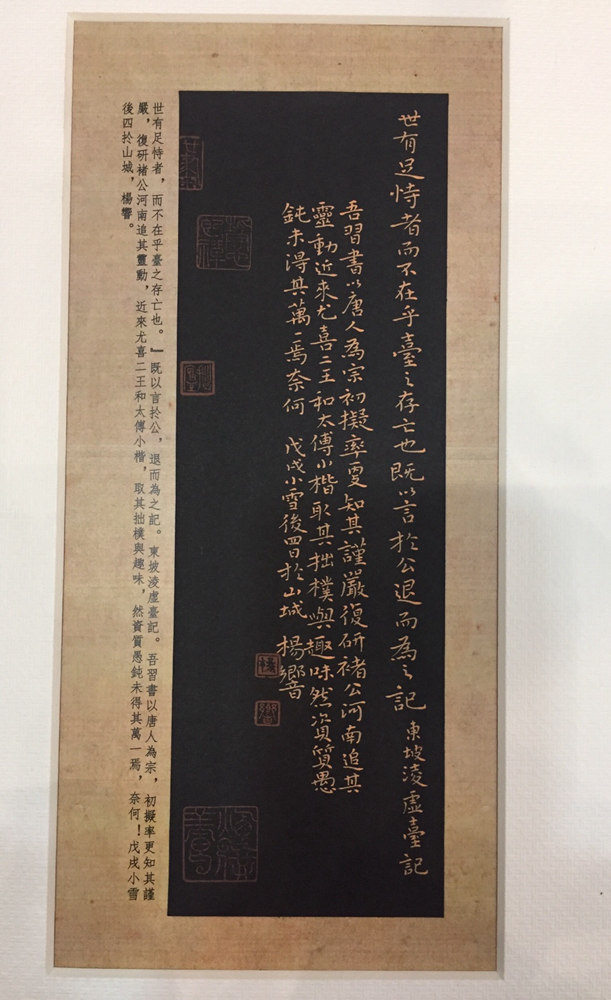 世有足恃者而不在乎臺之存亡也既以言於公退而為之記 東坡淩虛臺記
吾習書以唐人為宗初擬率更知其謹嚴復研褚公河南追其
靈動近來尤喜二王和太傅小楷取其拙樸與趣味然資質愚
鈍未得其萬一焉奈何 戊戌小雪後四日於山城 楊響
世有足恃者，而不在乎臺之存亡也。』既以言扵公，退而為之記。東坡淩虛臺記。吾習書以唐人為宗，初擬率更知其謹
嚴，復研褚公河南追其靈動，近來尤喜二王和太傅小楷，取其拙樸與趣味，然資質愚鈍未得其萬一焉，奈何！戊戌小雪
後四扵山城，楊響。